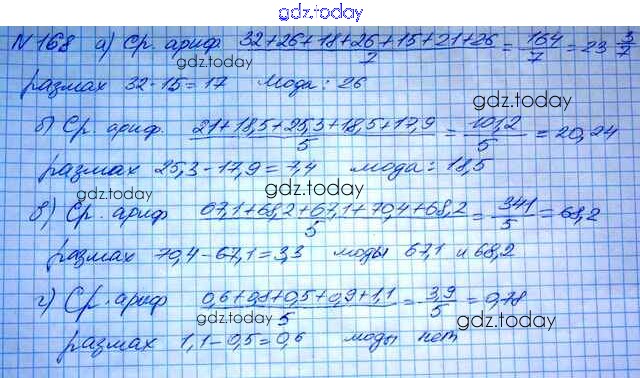 gdz.today
№168 а) Ср. ариф 32+26+18+26+15+21+26/7 = 164/7 = 23 3/7
gdz.today
размах 32-15=17 Мода: 26
gdz.today
б) Ср. ариф. 21+18,5+25,3+18,5+17,9/5 = 101,2/5 = 20,24
размах 25,3-17,9=7,4 мода: 18,5
gdz.today gdz.today
в) Ср. ариф 67,1+68,2+67,1+70,4+68,2/5 = 341/5 = 68,2
размах 70,4-67,1=3,3 моды 67,1 и 68,2
г) Ср. ариф 0,6+0,8+0,5+0,9+1,1/5 = 3,9/5 = 0,78
gdz.today gdz.today
размах 1,1-0,5=0,6 моды нет